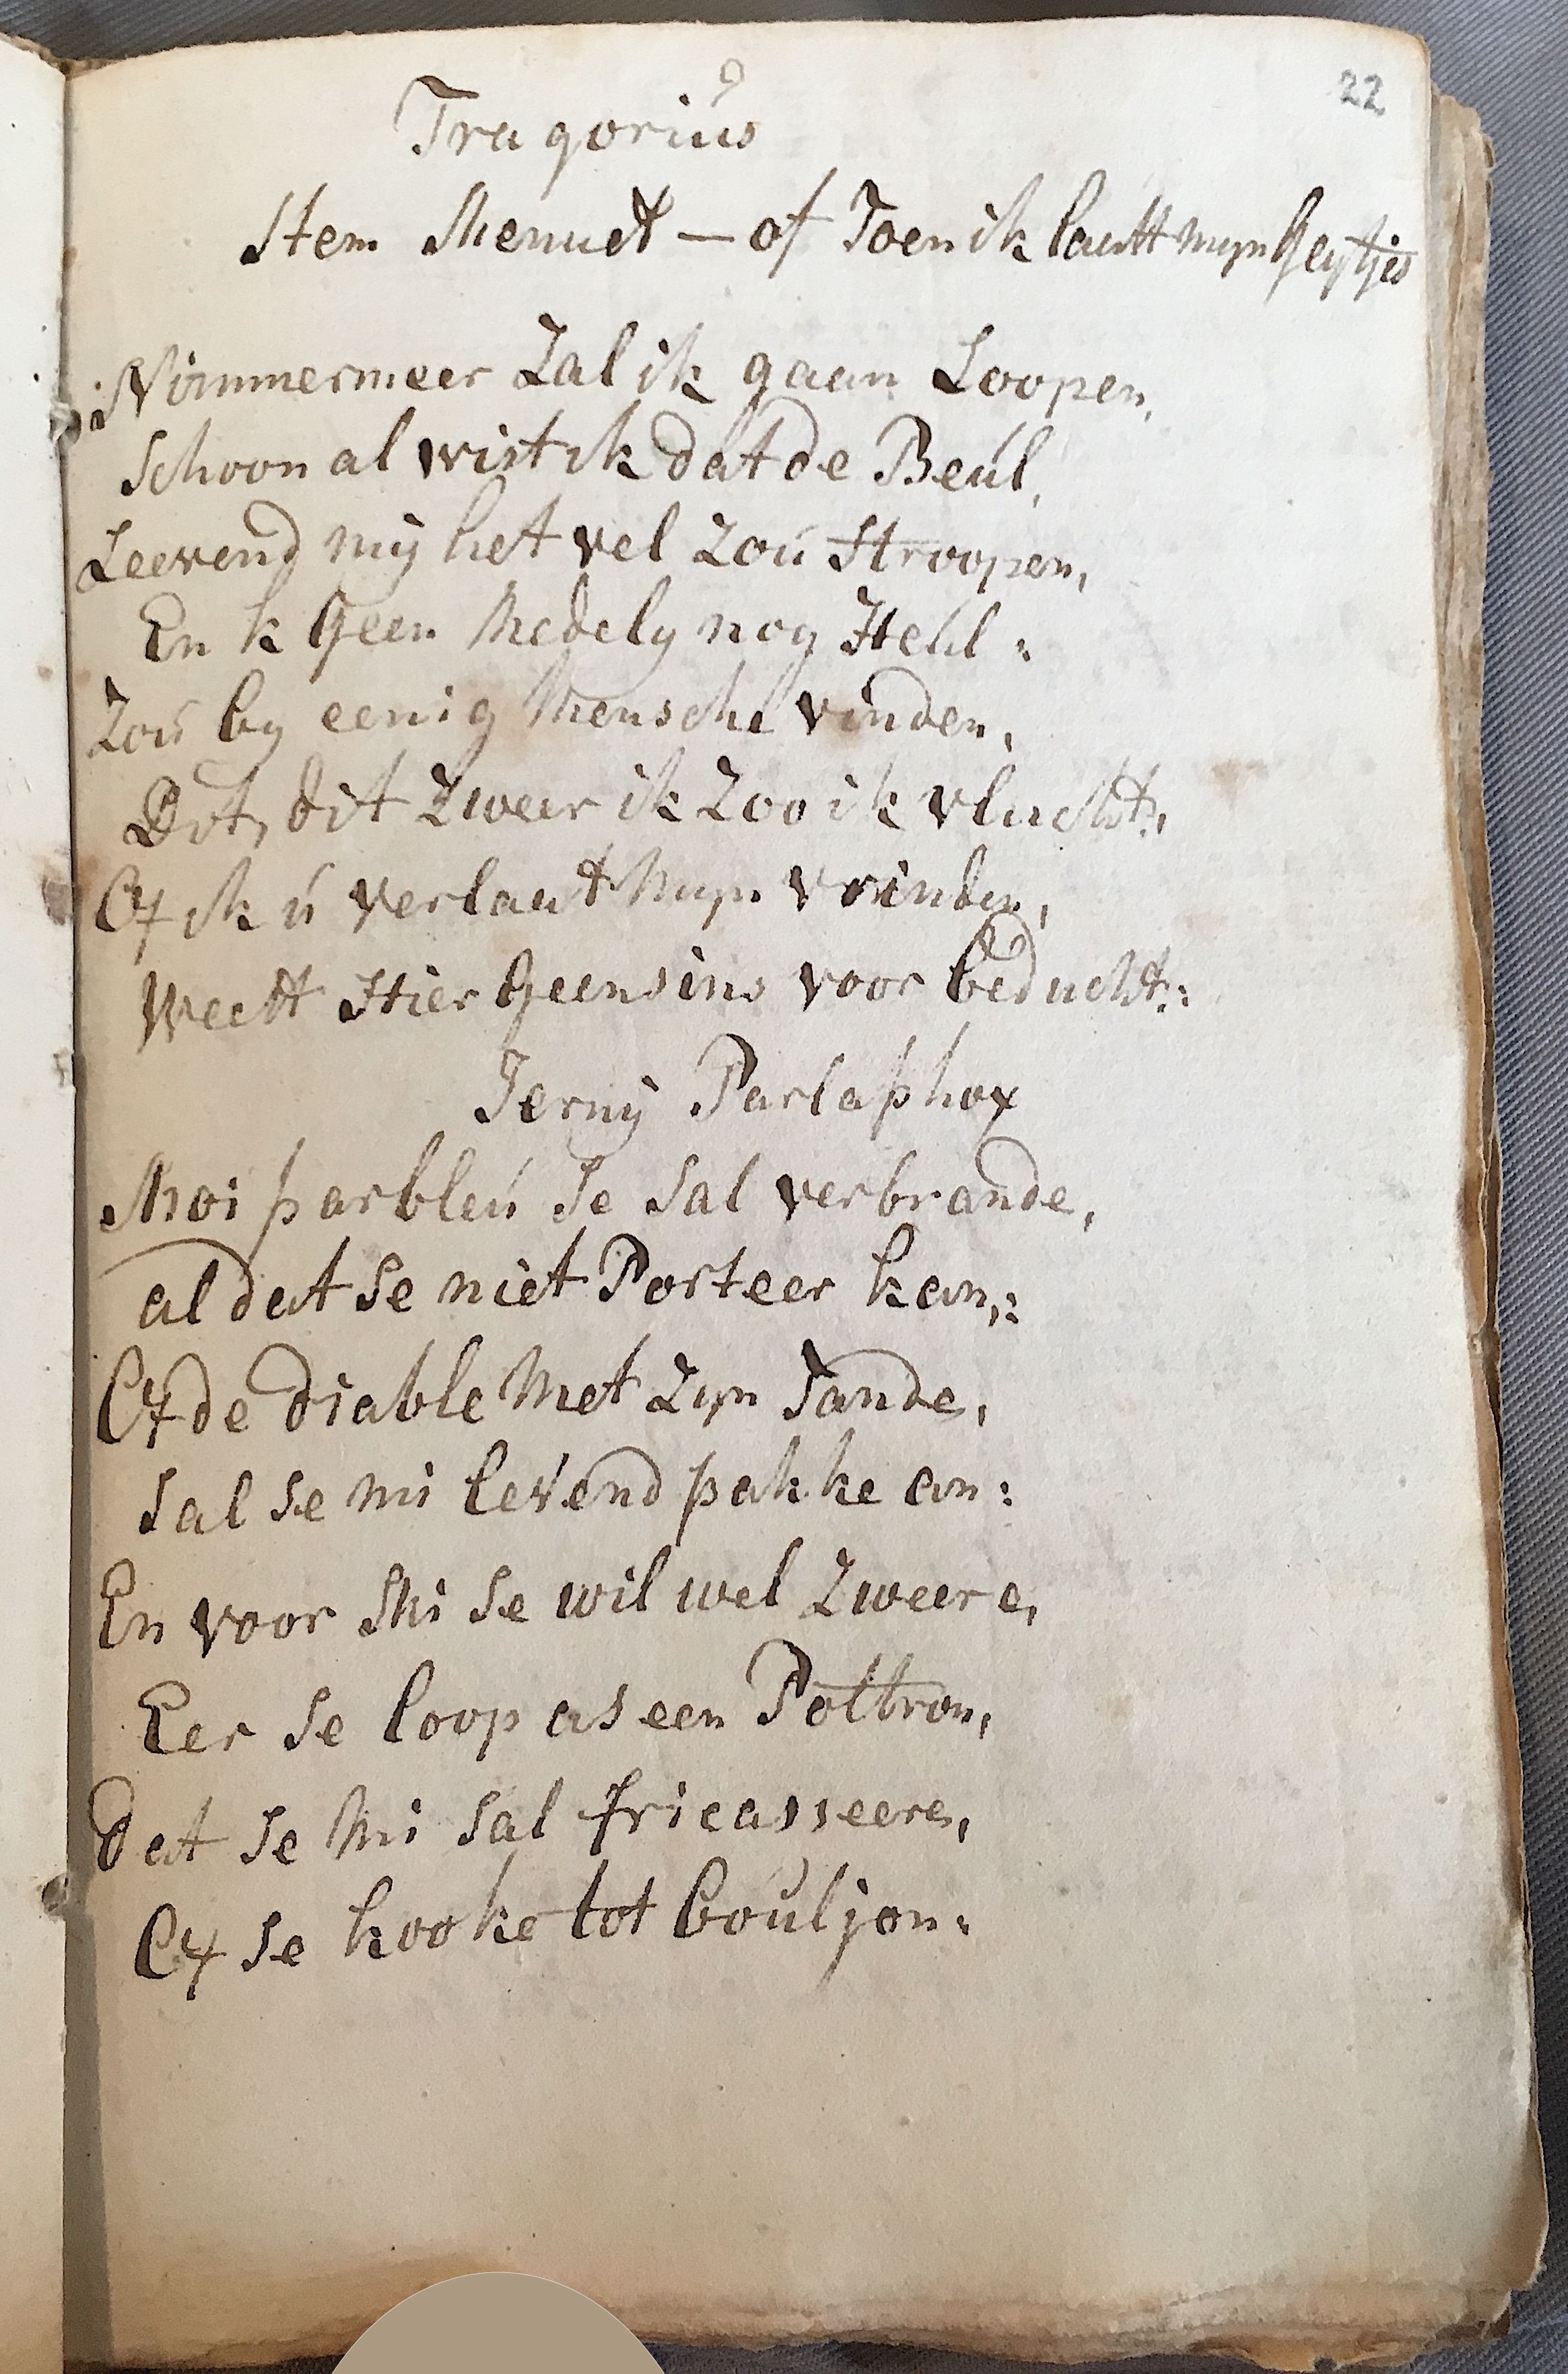 22
Tragorius
Stem Menuet — of Toen ik laatst myn Geytjes
Nimmermeer Zal ik gaan Loopen,
Schoon al wist ik dat de Beul,
Leevend mij het vel Zou Stroopen,
En k Geen Medely nog Heul:
Zou by eenig Mensche vinden,
Dit, dit Zweer ik Zoo ik vlucht,
Of ik u verlaat Myn vrinden,
Weest Hier Geensins voor beducht:
Jerny Parlaphox
Moi parbleu Se Sal verbrande,
al dat Se niet Porteer kan,:
Of de diable Met Zyn Tande,
Sal Se mi levend pakke an:
En voor Mi Se wil wel Zweere,
Eer Se loop as een Poltron,
dat Se Mi Sal fricasseere,
Of Se kooke tot bouljon: